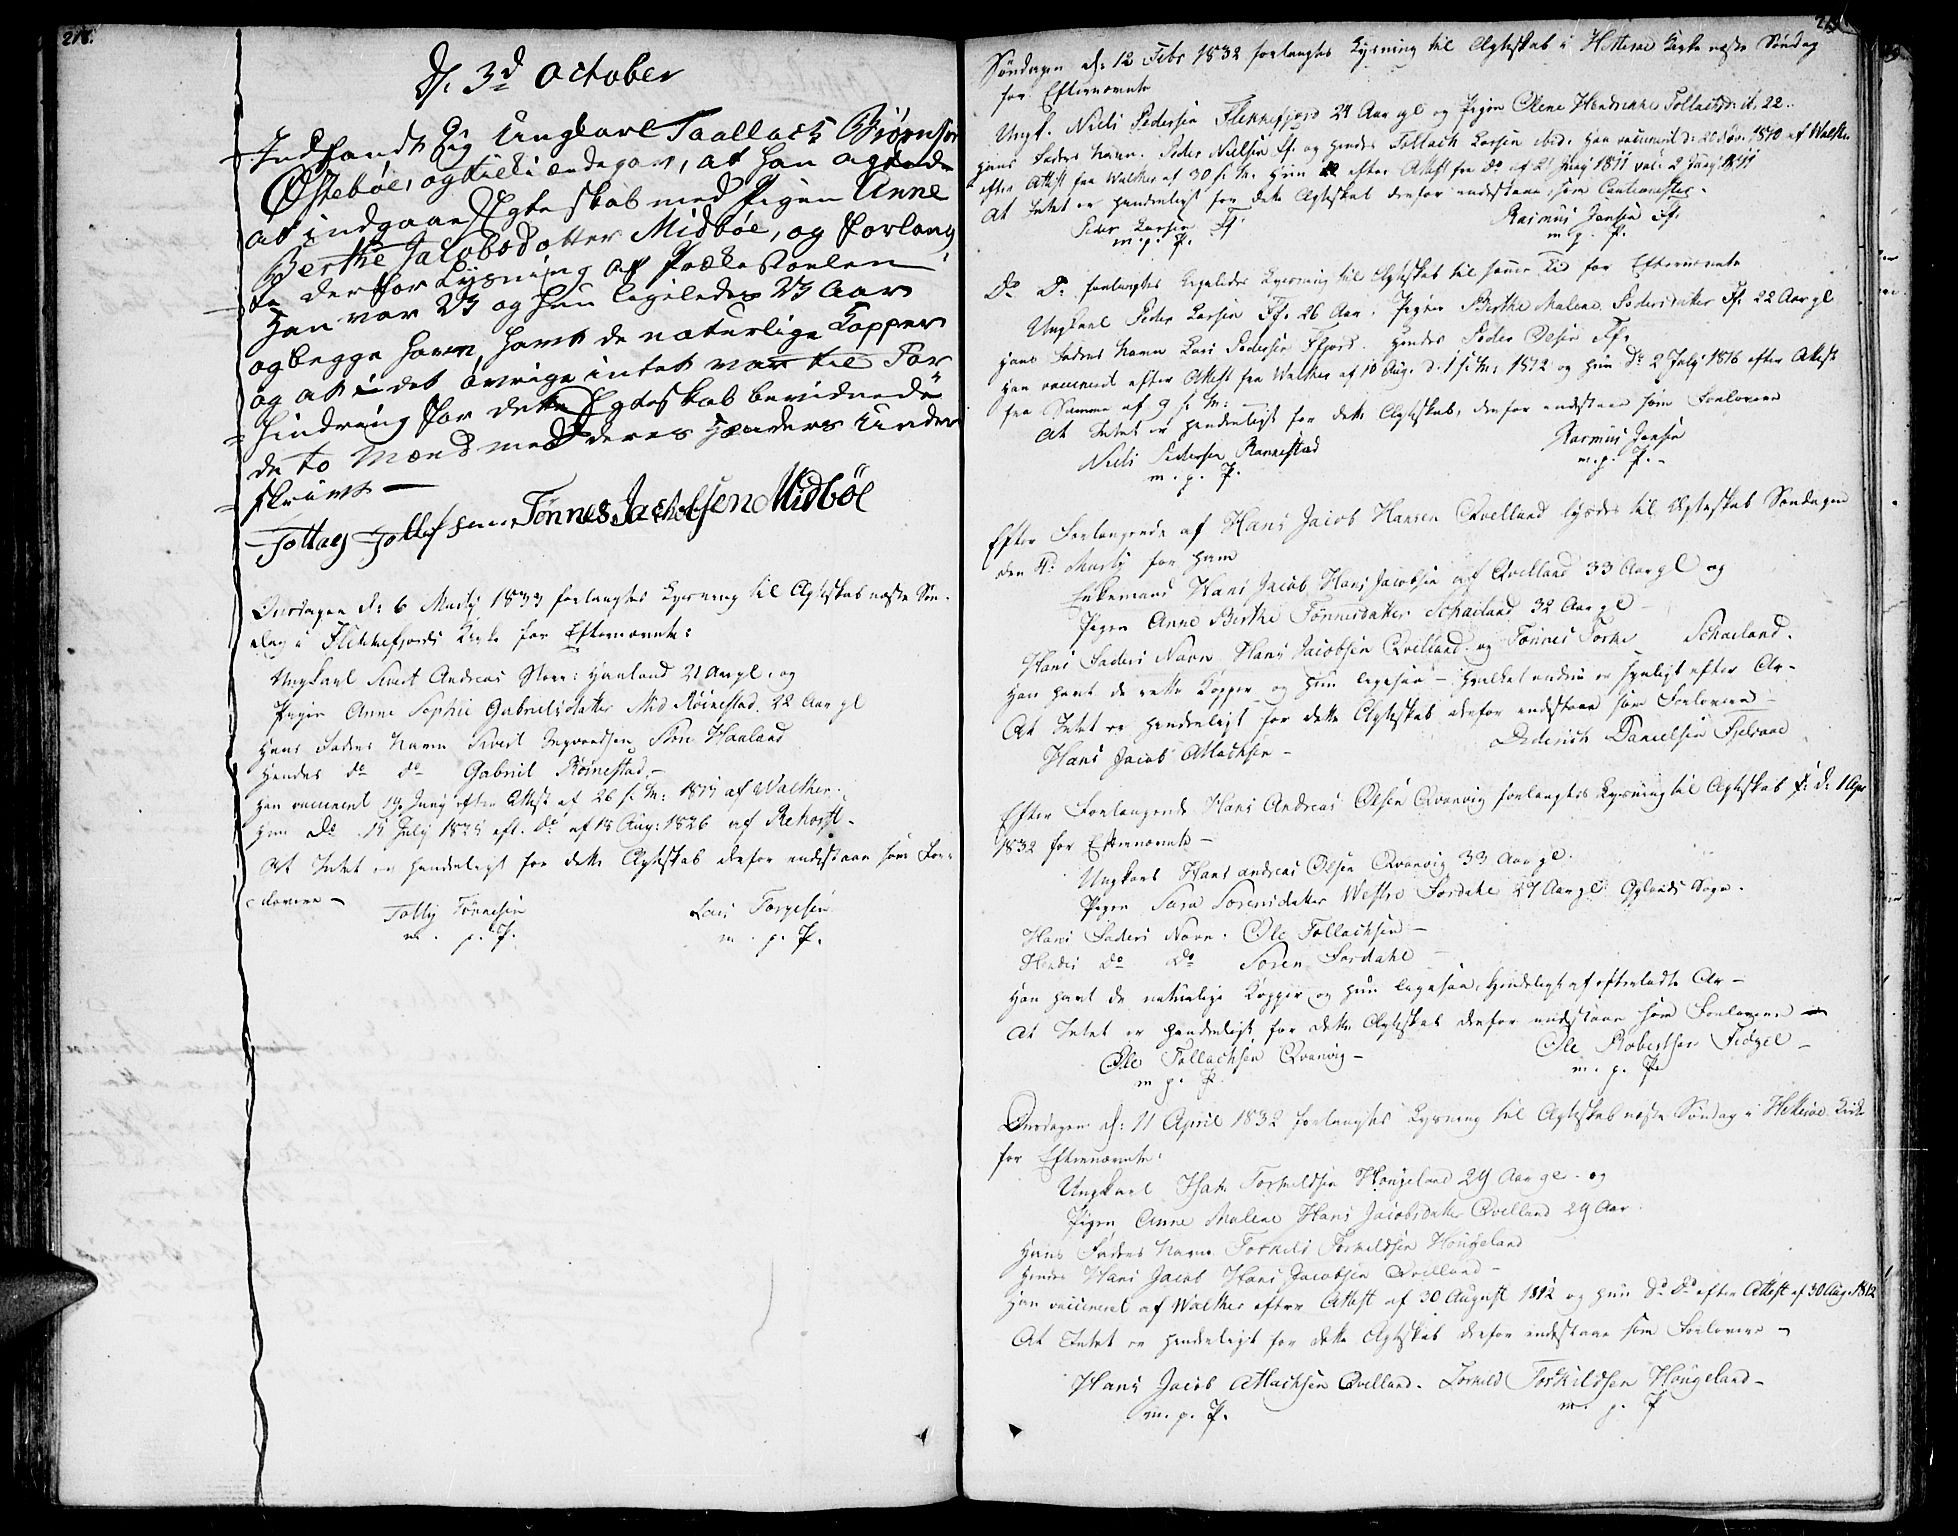 218.
D. 3d October
Indfandt Sig Ungkarl Taallach Biørnsen
Østebøe, og tilkiendegav, at han agtede
at indgaae Ægteskab med Pigen Anne
Berthe Jacobsdotter Midbøe, og forlang
te derfor Lysning af Prækestoelen
Han var 23 og hun ligeledes 23 Aar
og begge haver havt de naturlige Kopper
og at i det øvrige intet var til For
hindring for dette Ægteskab bevidnede
de to Mænd med deres Hænders Under
skrivt —
Tollag Tollefsen Tønnes Jachobsen Midbøe
Onsdagen d: 6 Marty 1833 forlangtes Lysning til Ægteskab næste Søn-
dag i Flekkefjords Kirke for Efternævnte:
Ungkarl Sivert Andreas Store: Hauland 21 Aar gl. og
Pigen Anne Sophie Gabrielsdatter Mid Røinestad 22 Aar gl
Hans Faders Navn Sivert Ingvordsen Store Hauland
Hendes do do Gabriel Røinestad —
Han vaccineret 19 Juny efter Attest af 26 s. M: af Walker.
Hun do 15 July eft. do af 18 Aug: 1826 af Rehorst —
At Intet er hinderligt for dette Ægteskab derfor indestaae som For-
lovere —
Tolly Tønnesen Lars Torgesen
m. p. P. m. p. P.
219
Søndagen d: 12 Febr 1832 forlangtes Lysning til Ægteskab i Hitterøe Kirke næste Søndag
for Efternævnte
Ungk. Niels Pedersen Flekkefjord 24 Aar gl og Pigen Olene Hendrikke Tollachsd: it. 22..
Hans Faders Navn. Peder Nielsen Ff. og hendes Tollach Larsen ibid. Han vaccineret d: 20 Nov. 1810 af Walker
efter Attest fra Walker af 30 s. M. Hun efter Attest fra do af 21 Juny 1811 vac: 2 1811
At Intet er hinderligt for dette Ægteskab derfor indestaae som Cautionister.
Peder Larsen Ff Rasmus Jansen Ff.
m. p. P. m. p. P.
Do Do forlangtes ligeledes Lysning til Ægteskab til samme Tid for Efternævnte
Ungkarl Peder Larsen Ff. 26 Aar. Pigen Birthe Malene Pedersdatter Ff. 22 Aar gl
Hans Faders Navn Lars Pedersen Ffjord. Hendes Peder Olsen Ff.
Han vaccineret efter Attest fra Walker af 10 Aug. d. 1 s. M: 1812 og Hun do 2 July 1816 efter Attest
fra Samme af 9 s. M: —
At Intet er hinderligt for dette Ægteskab, derfor indestaae som Forlovere
Niels Pedersen Rannestad Rasmus Jansen
m. p. P. m. p. P. -
Efter Forlangende af Hans Jacob Hansen Qvelland lystes til Ægteskab Søndagen
den Marty for ham
Enkemand Hans Jacob Hans Jacobsen af Qvelland 33 Aar gl og
Pigen Anne Birthe Tønnesdatter Schaeland 32 Aar gl —
Hans Faders Navn Hans Jacobsen Qvelland og Tønnes Schaeland.
Han havt de rette Kopper og Hun ligesaa — hvilket endnu er synligt efter Ar-
At Intet er hinderligt for dette Ægteskab derfor indestaae som Forlovere —
Hans Jacob Attachsen — Diderich Danielsen Fjelsaae
Efter Forlangende Hans Andreas Olsen Qvanvig forlangtes Lysning til Ægteskab d: 1 Apr
1832 for Efternævnte —
Ungkarl Hans Andreas Olsen Qvanvig 33 Aar gl.
Pigen Sara Sorensdatter Westre Fordahl 27 Aar gl: Gylands Sogn.
Hans Faders Navn. Ole Tollachsen —
Hendes do do Soren Fordahl —
Han havt de naturlige Kopper og Hun ligesaa, kjendeligt af efterladte Ar —
At Intet er hinderligt for dette Ægteskab derfor indestaae som Forlovere —
Ole Tollachsen Qvanvig — Ole Robertsen Fidzel —
m. p. P. m. p. P.
Onsdagen d: 11 April 1832 forlangtes Lysning til Ægteskab næste Søndag i Hitterøe Kirke
for Efternævnte:
Ungkarl Isak Torkildsen Hougeland 29 Aar gl. og
Pigen Anne Malene Hans Jacobsdatter Qvelland 29 Aar.
Hans Faders Navn Torkild Torkildsen Hougeland
Hendes Hans Jacob Hans Jacobsen Qvelland —
Han vaccineret af Walker efter Attest af 30 August 1812 og Hun do do efter Attest af 30 Aug. 1812
At Intet er hinderligt for dette Ægteskab derfor indestaae som Forlovere —
Hans Jacob Attachsen Qvelland. Torkild Torkildsen Hougeland —
m. p. P. m. p. P